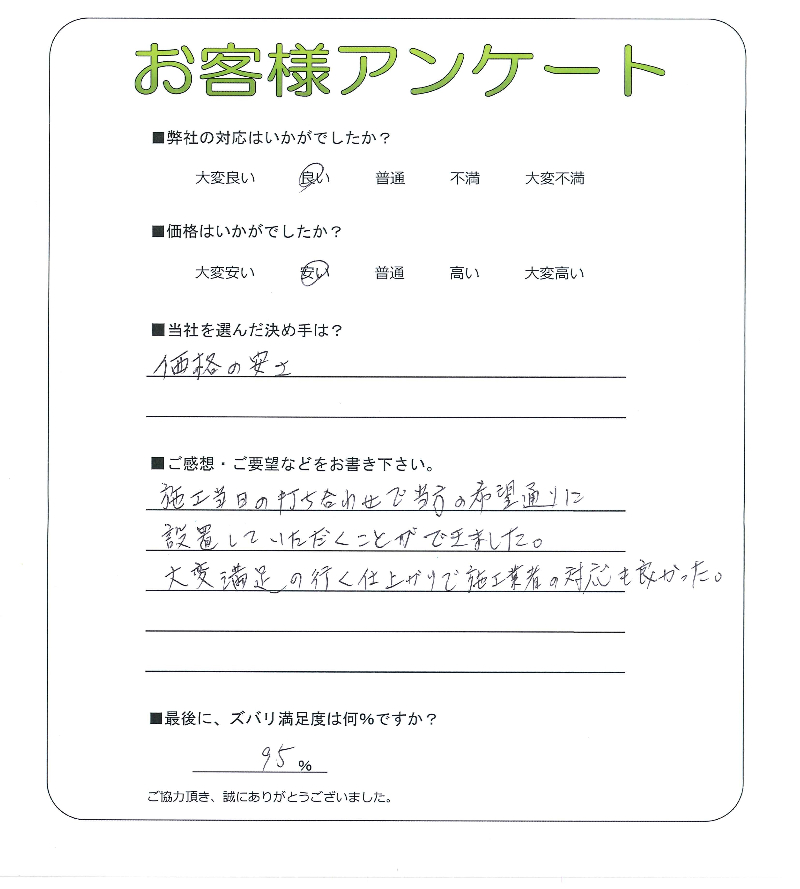 お客様アンケート
■弊社の対応はいかがでしたか？
大変良い 良い 普通 不満 大変不満
■価格はいかがでしたか？
大変安い 安い 普通 高い 大変高い
■当社を選んだ決め手は？
価格の安さ
■ご感想・ご要望などをお書き下さい。
施工当日の打ち合わせで当方の希望通りに
設置していただくことができました。
大変満足の行く仕上がりで施工業者の対応も良かった。
■最後に、ズバリ満足度は何％ですか？
95 %
ご協力頂き、誠にありがとうございました。